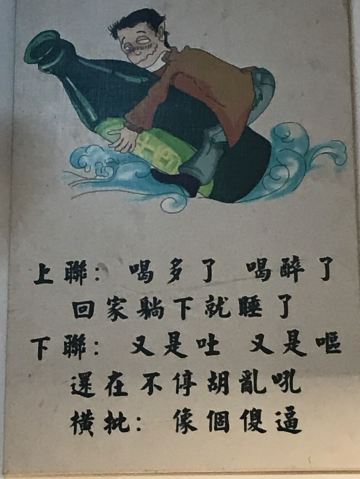 上聯：喝多了 喝醉了
回家躺下就睡了
下聯：又是吐 又是嘔
還在不停胡亂吼
橫批：像個傻逼